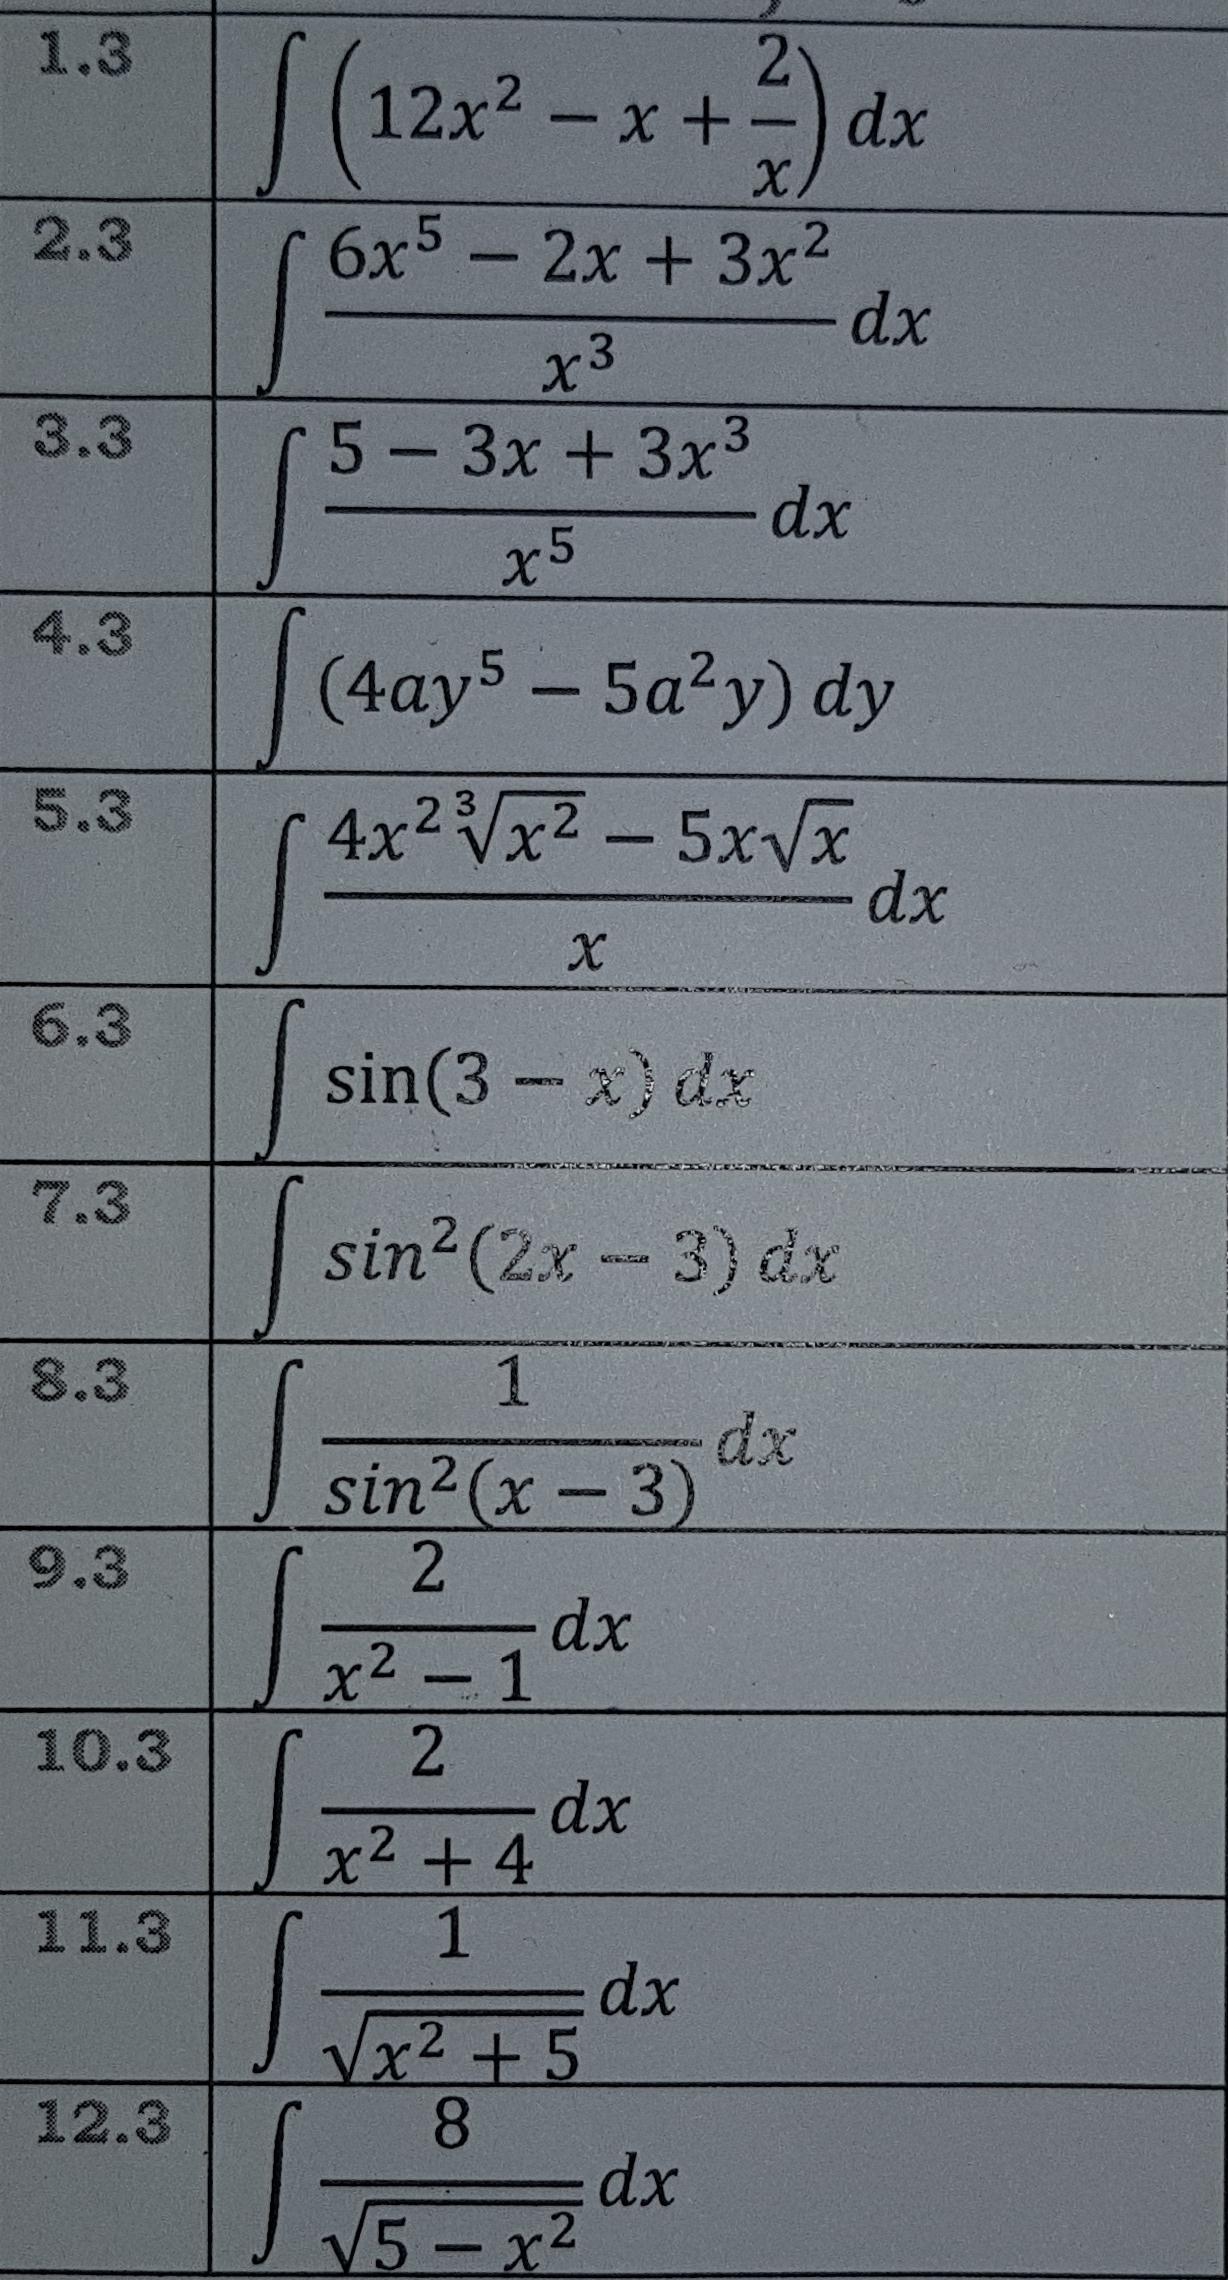 1.3 ∫ (12x² − x + 2/x) dx
2.3 ∫ (6x⁵ − 2x + 3x²)/x³ dx
3.3 ∫ (5 − 3x + 3x³)/x⁵ dx
4.3 ∫ (4ay⁵ − 5a²y) dy
5.3 ∫ (4x² ∛(x²) − 5x√x)/x dx
6.3 ∫ sin(3 − x) dx
7.3 ∫ sin²(2x − 3) dx
8.3 ∫ 1/sin²(x − 3) dx
9.3 ∫ 2/(x² − 1) dx
10.3 ∫ 2/(x² + 4) dx
11.3 ∫ 1/√(x² + 5) dx
12.3 ∫ 8/√(5 − x²) dx